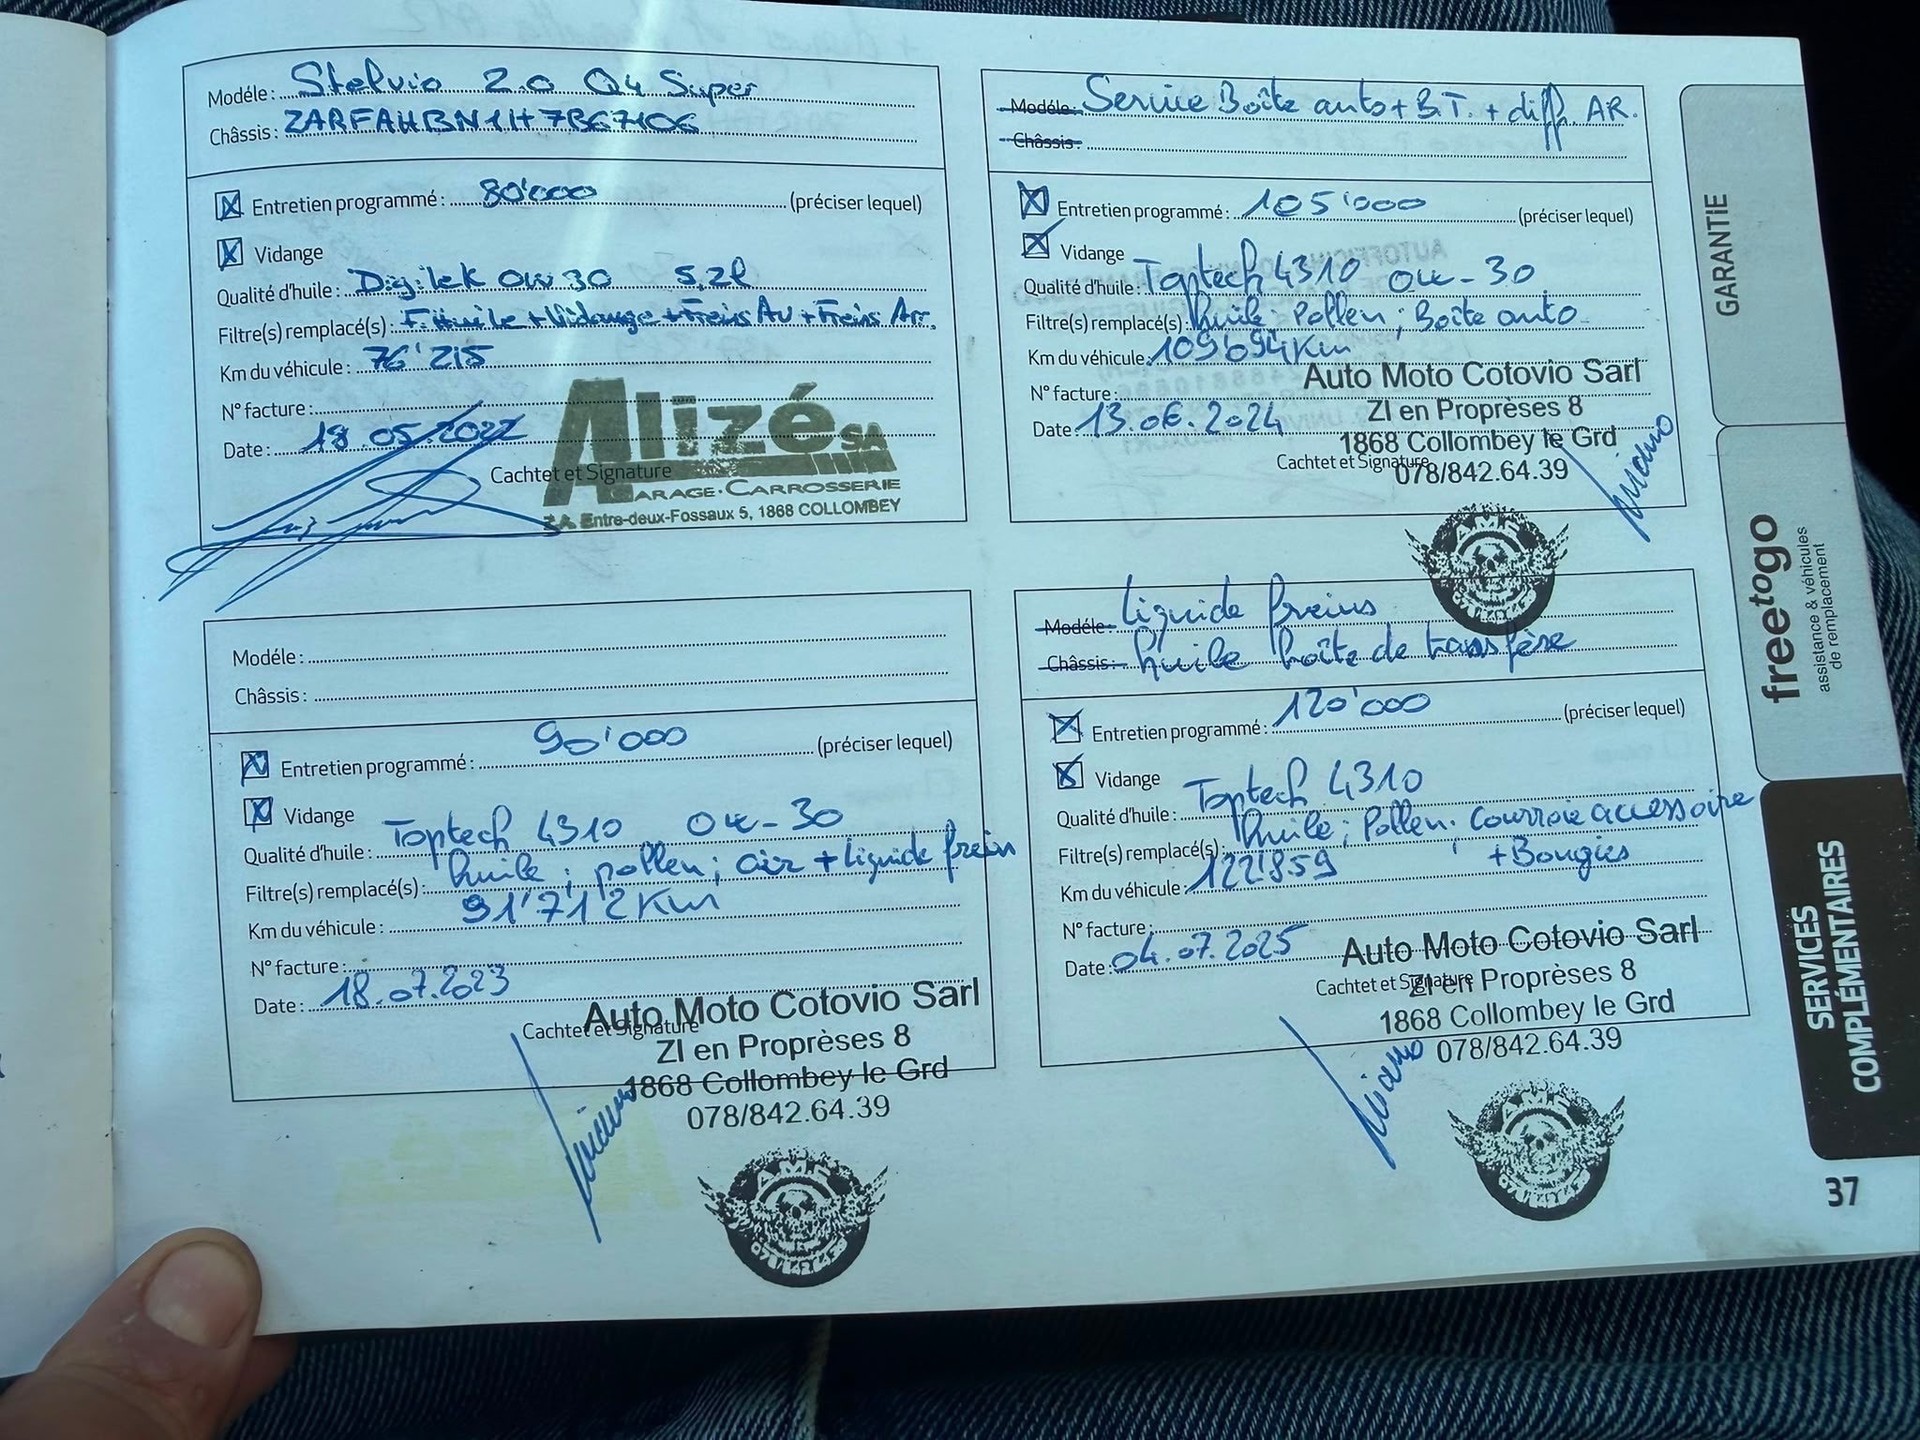 Modéle : Stelvio 2.0 Q4 Super
Châssis : ZARFAHBN1H7B67106
Entretien programmé : 80'000 (préciser lequel)
Vidange
Qualité d'huile : Digitek 0W30 5,2l
Filtre(s) remplacé(s) : F. Huile + Vidange + Freins AV + Freins Arr.
Km du véhicule : 76'215
N° facture :
Date : 18.05.2022
Cachtet et Signature
Alizé SA
GARAGE-CARROSSERIE
Z.A. Entre-deux-Fossaux 5, 1868 COLLOMBEY
Modéle :
Châssis :
Entretien programmé : 90'000 (préciser lequel)
Vidange
Qualité d'huile : Toptech 4310 0W-30
Filtre(s) remplacé(s) : huile ; pollen ; air + liquide frein
Km du véhicule : 91'712 Km
N° facture :
Date : 18.07.2023
Cachtet et Signature
Auto Moto Cotovio Sarl
ZI en Proprèses 8
1868 Collombey le Grd
078/842.64.39
A.M.C
Modéle : Service Boîte auto + B.T. + diff. AR.
Châssis :
Entretien programmé : 105'000 (préciser lequel)
Vidange
Qualité d'huile : Toptech 4310 0W-30
Filtre(s) remplacé(s) : huile ; Pollen ; Boîte auto
Km du véhicule : 109'694 Km
N° facture :
Date : 13.06.2024
Cachtet et Signature
Auto Moto Cotovio Sarl
ZI en Proprèses 8
1868 Collombey le Grd
078/842.64.39
A.M.C
Modéle : liquide freins
Châssis : huile boîte de transfère
Entretien programmé : 120'000 (préciser lequel)
Vidange
Qualité d'huile : Toptech 4310
Filtre(s) remplacé(s) : huile ; Pollen ; courroie accessoire
+ Bougies
Km du véhicule : 122'859
N° facture :
Date : 04.07.2025
Cachtet et Signature
Auto Moto Cotovio Sarl
ZI en Proprèses 8
1868 Collombey le Grd
078/842.64.39
A.M.C
GARANTIE
freetogo
assistance & véhicules
de remplacement
SERVICES
COMPLÉMENTAIRES
37